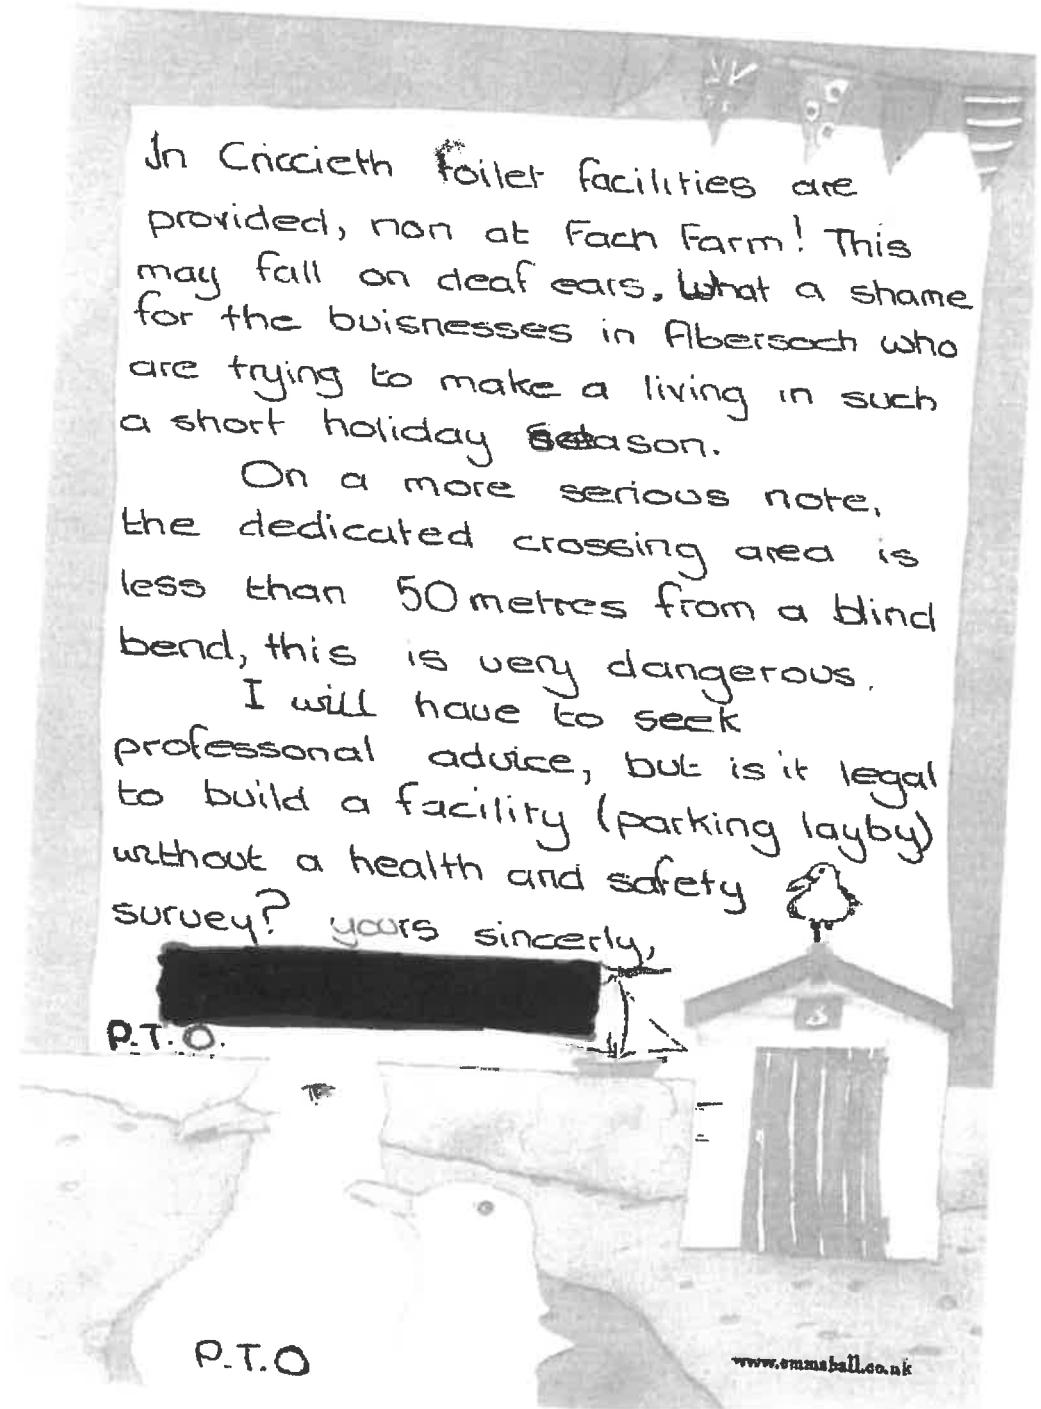 In Criccieth toilet facilities are
provided, non at Fach Farm! This
may fall on deaf ears. What a shame
for the buisnesses in Abersoch who
are trying to make a living in such
a short holiday season.
On a more serious note,
the dedicated crossing area is
less than 50 metres from a blind
bend, this is very dangerous.
I will have to seek
professonal advice, but is it legal
to build a facility (parking layby)
without a health and safety
survey? yours sincerly,
P.T.O.
3
P.T.O
www.emmaball.co.uk